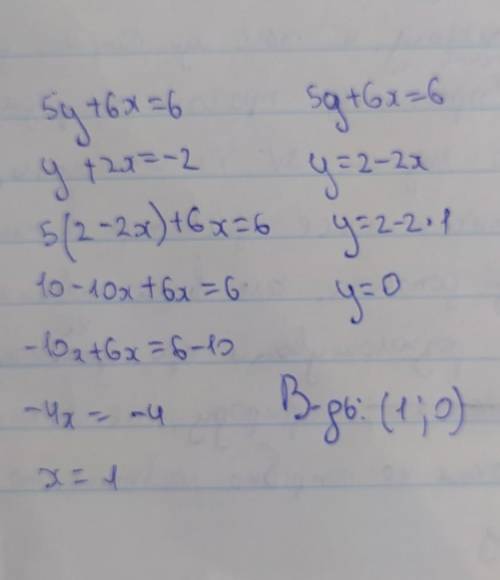 5y+6x=6
y+2x=-2
5(2-2x)+6x=6
10-10x+6x=6
-10x+6x=6-10
-4x=-4
x=1
5y+6x=6
y=2-2x
y=2-2·1
y=0
В-дь: (1;0)